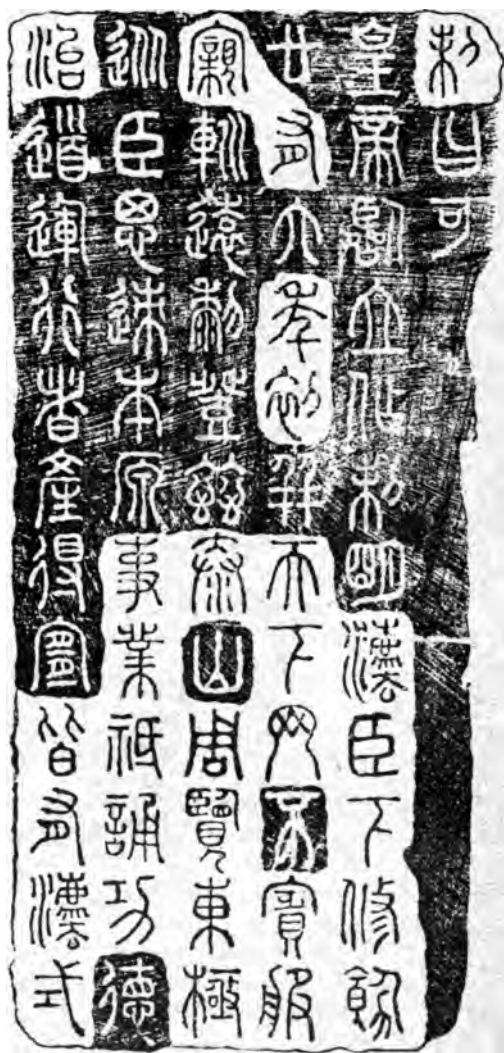 制曰可
皇帝臨立作制明灋臣下脩飭
廿有六年初并天下罔不賓服
寴巡遠黎登茲泰山周覽東極
從臣思迹本原事業祗誦功德
治道運行者產得宜皆有灋式